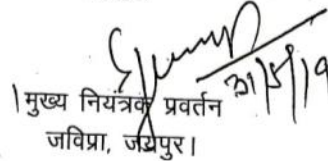 31/5/19
।मुख्य नियंत्रक प्रवर्तन
जविप्रा, जयपुर।